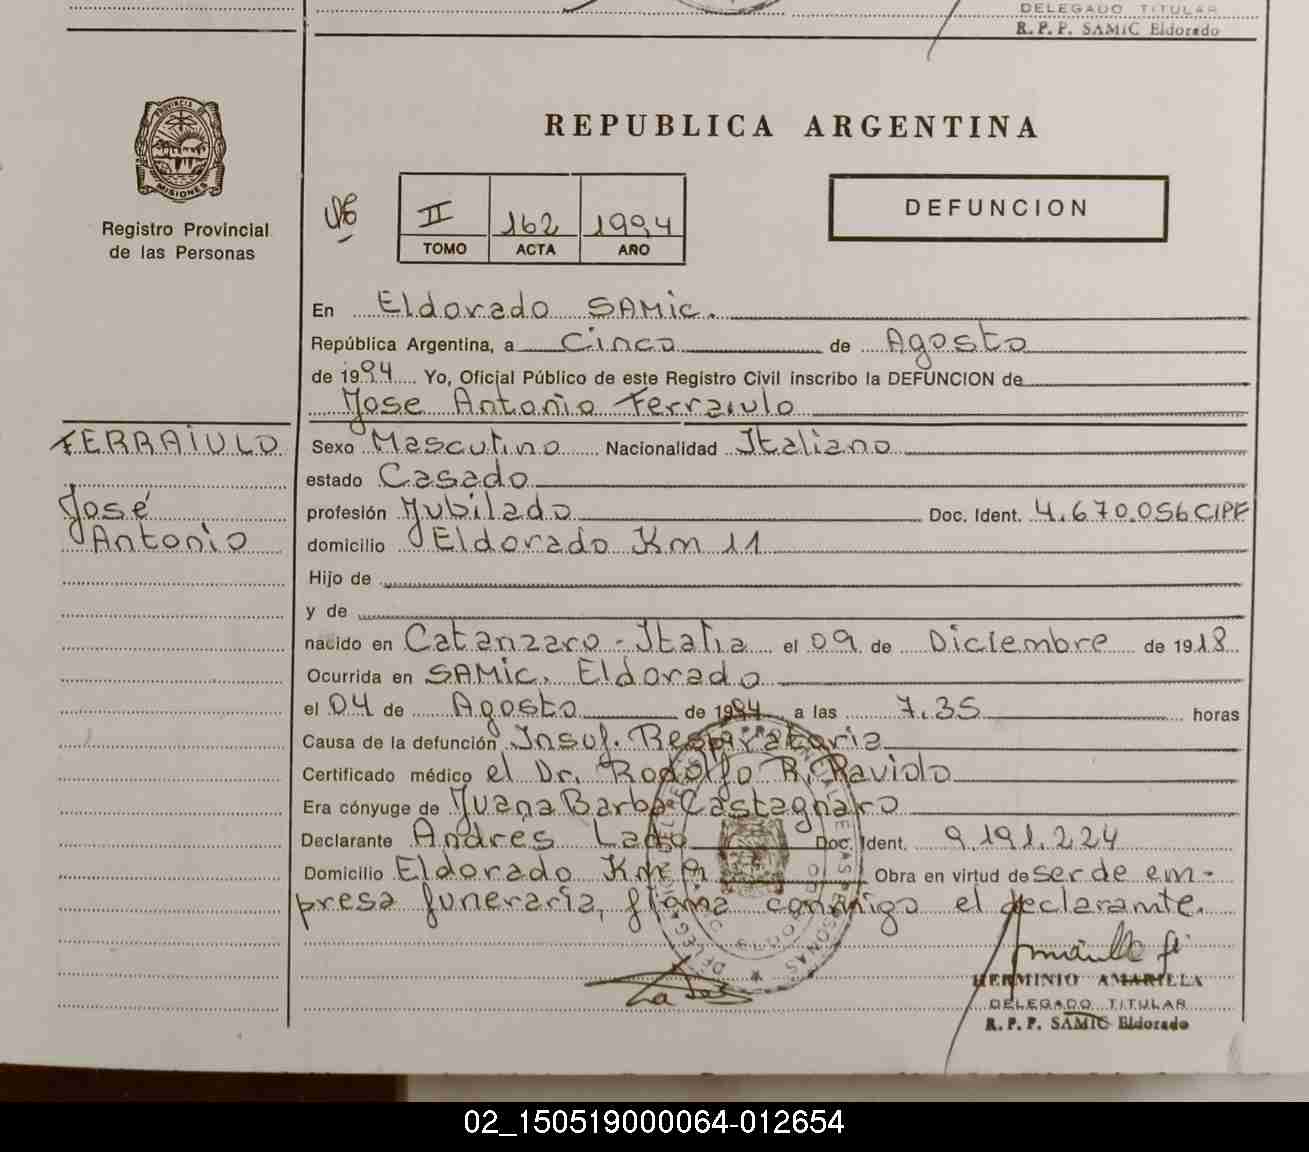 DELEGADO TITULAR
R. P. P. SAMIC Eldorado
PROVINCIA DE
MISIONES
Registro Provincial
de las Personas
REPUBLICA ARGENTINA
II 162 1994
TOMO ACTA AÑO
DEFUNCION
En Eldorado SAMic.
República Argentina, a Cinco de Agosto
de 1994 Yo, Oficial Público de este Registro Civil inscribo la DEFUNCION de
Jose Antonio Ferraiulo
FERRAIULO
José
Antonio
Sexo Masculino Nacionalidad Italiano
estado Casado
profesión Jubilado Doc. Ident. 4.670.056 CIPF
domicilio Eldorado Km 11
Hijo de
y de
nacido en Catanzaro - Italia el 09 de Diciembre de 1918
Ocurrida en SAMic. Eldorado
el 04 de Agosto de 1994 a las 7.35 horas
Causa de la defunción Insuf. Respiratoria
Certificado médico el Dr. Rodolfo R. Raviolo
Era cónyuge de Juana Barba Castagnaro
Declarante Andrés Doc. Ident. 9.191.224
Domicilio Eldorado Km 9 Obra en virtud de ser de em-
presa funeraria, firma conmigo el declarante.
HERMINIO AMARILLA
DELEGADO TITULAR
R. P. P. SAMIC Eldorado
02_150519000064-012654